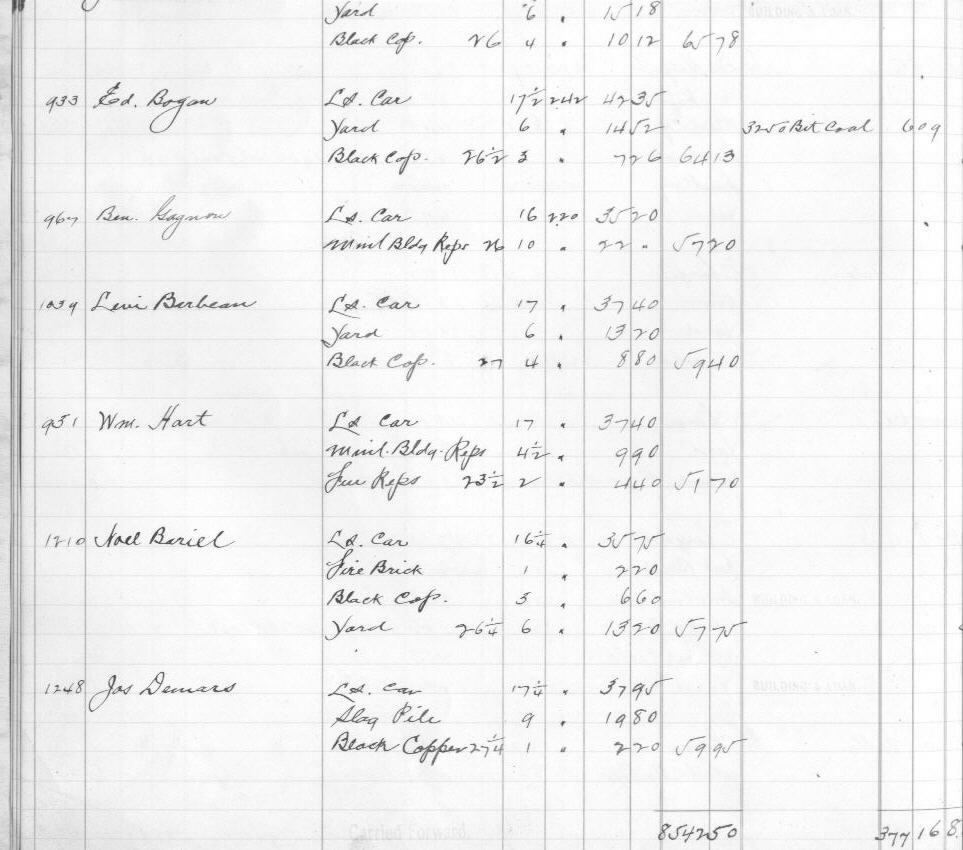 Yard 6 " 15 18
Black Cop. 26 4 " 10 12 65 78
933 Ed. Bogan Ls. Car 17½ 242 42 35
Yard 6 " 14 52 3250 Bit Coal 6 09
Black Cop. 26½ 3 " 7 26 64 13
967 Ben. Gagnon Ls. Car 16 220 35 20
Minl Bldg Reps 26 10 " 22 " 57 20
1039 Levi Berbean Ls. Car 17 " 37 40
Yard 6 " 13 20
Black Cop. 27 4 " 8 80 59 40
931 Wm. Hart Ls Car 17 " 37 40
Minl. Bldg. Reps 4½ " 9 90
Fur Reps 23½ 2 " 4 40 51 70
1210 Noel Bariel Ls. Car 16¼ " 35 75
Fire Brick 1 " 2 20
Black Cop. 3 " 6 60
Yard 26¼ 6 " 13 20 57 75
1248 Jos Demars Ls. Car 17¼ " 37 95
Slag Pile 9 " 19 80
Black Copper 27¼ 1 " 2 20 59 95
Carried Forward 8542 50 377 16 8